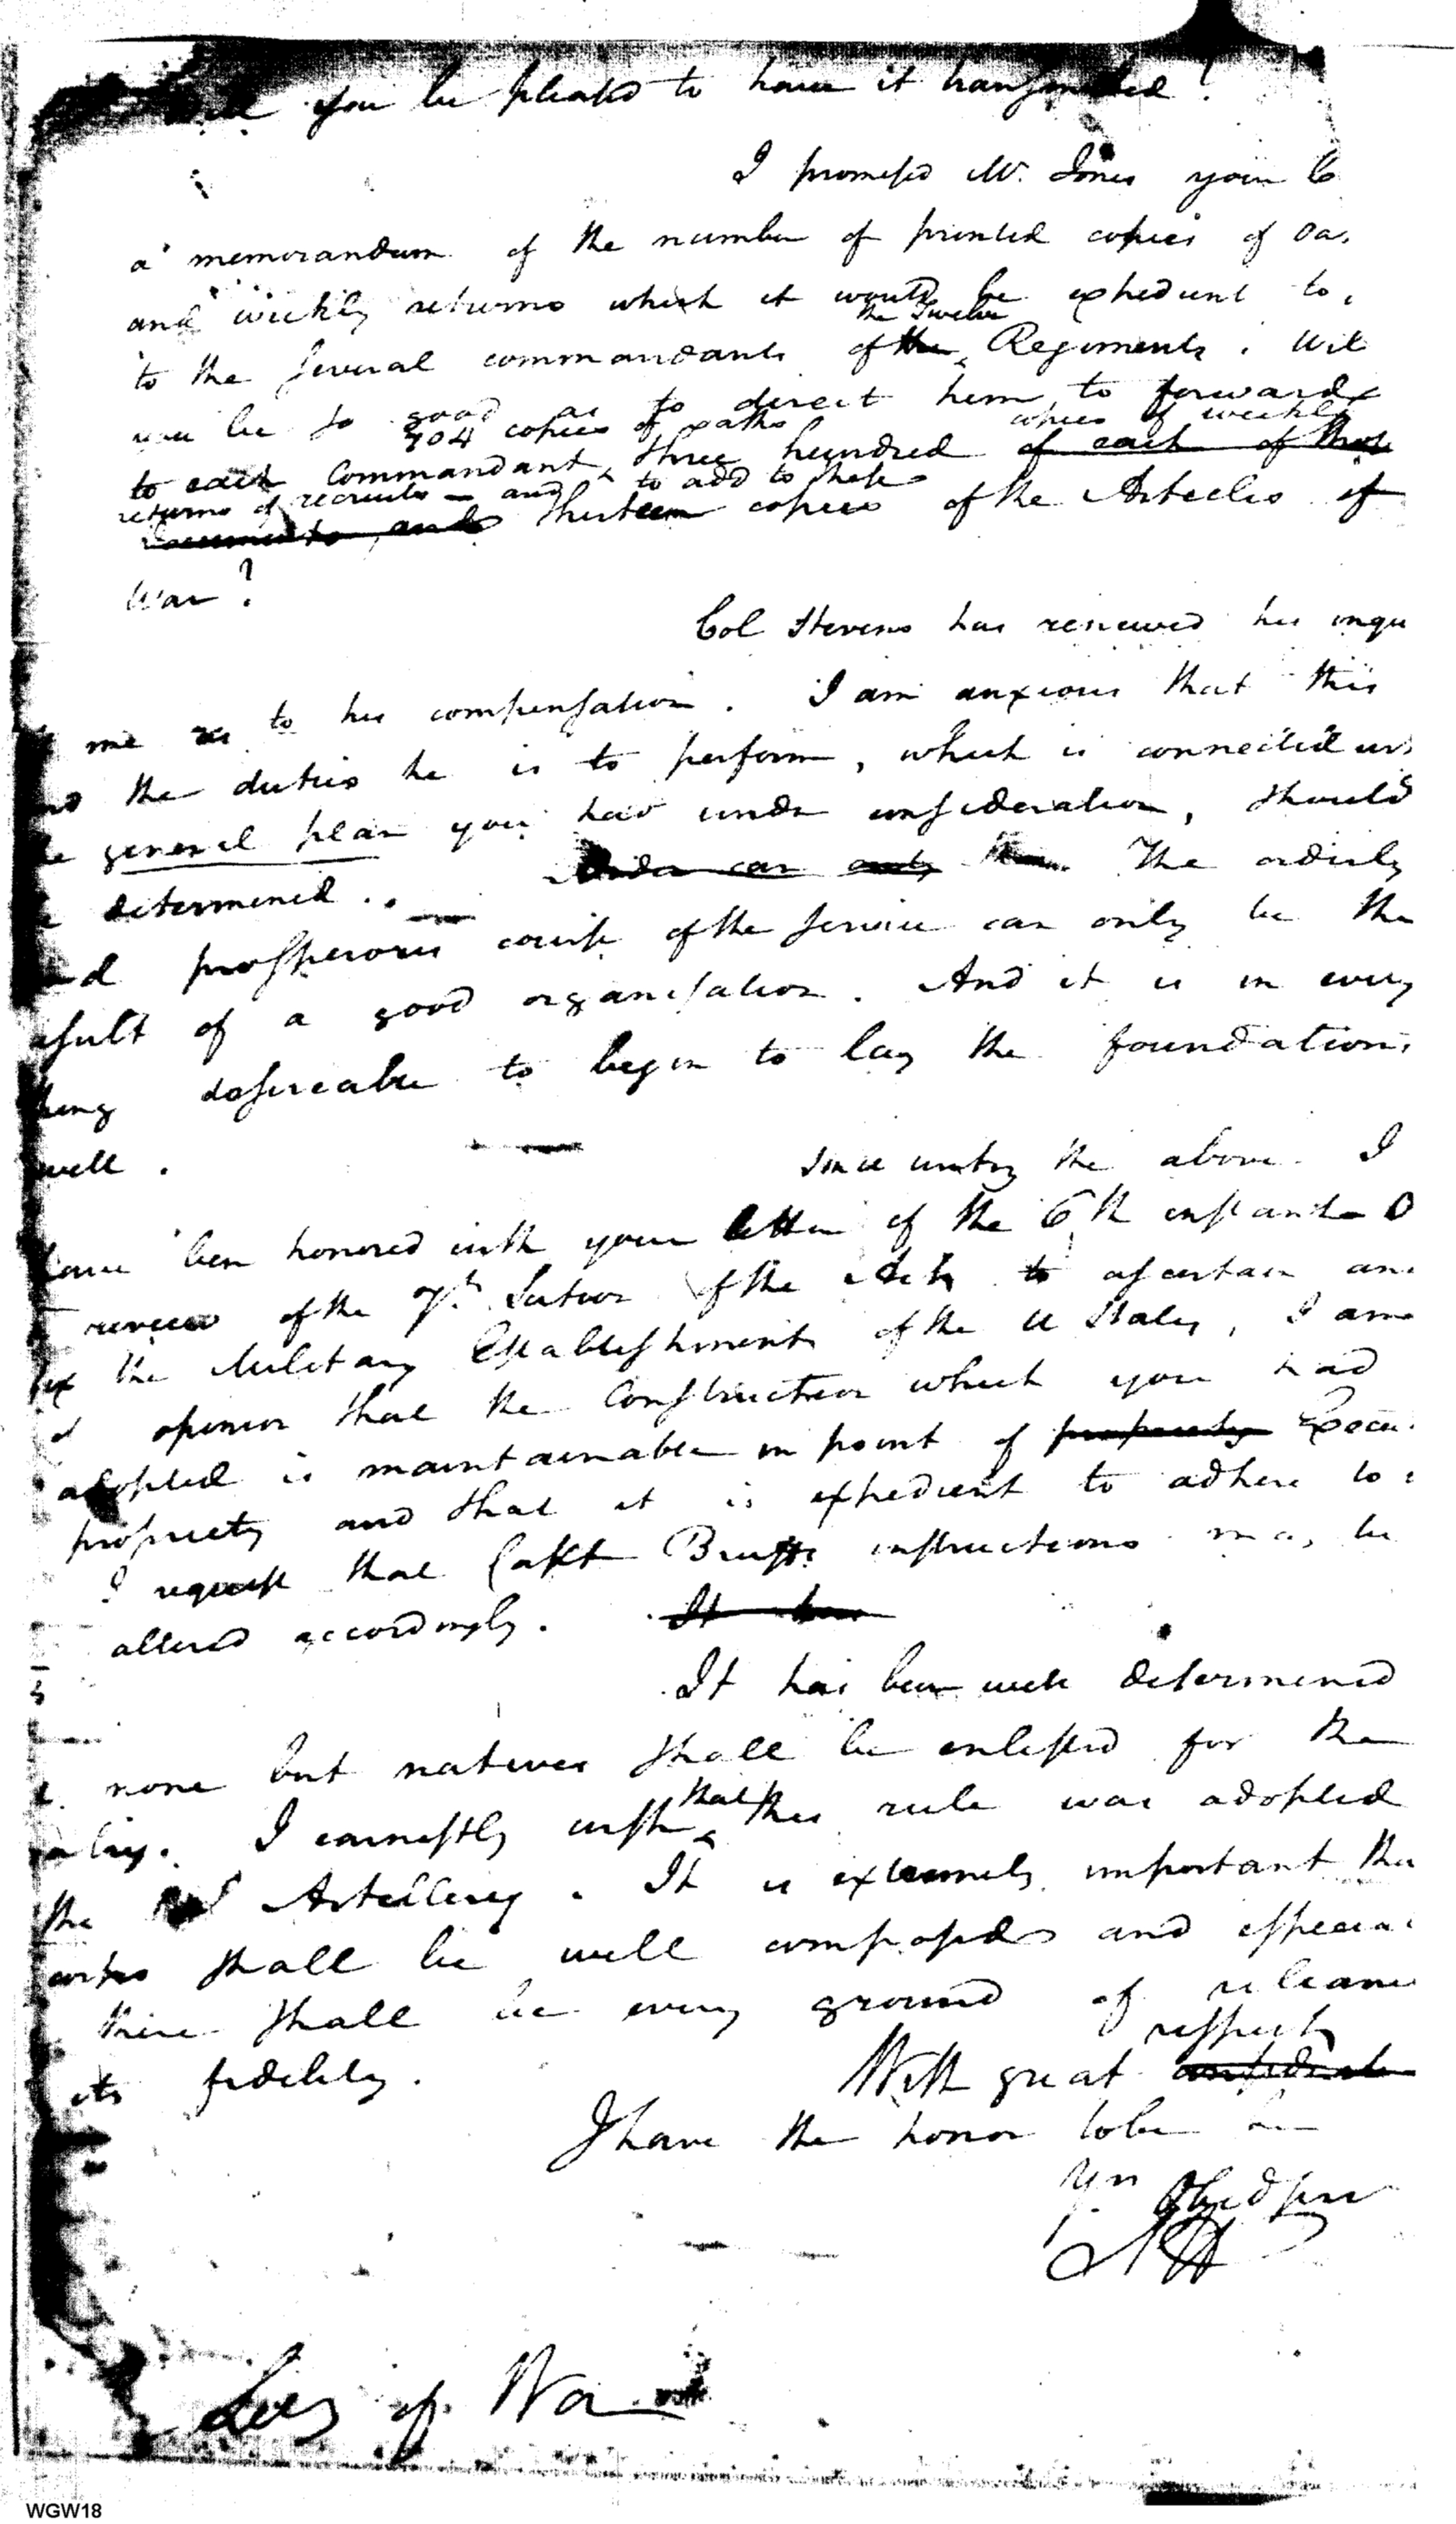 you be pleased to have it transmitted?
I promised Mr. Jones your C
a memorandum of the number of printed copies of oa
and weekly returns which it would be expedient to
the Twelve
to the several commandants of the Regiments. Will
you be so good as to direct him to forward
704 copies of oaths copies of weekly
to each Commandant three hundred of each of these
returns of recruits — and to add to these
documents, and thirteen copies of the Articles of
War?
Col Stevens has renewed his inqu
me as to his compensation. I am anxious that this
the duties he is to perform, which is connected
general plan you have under consideration, should
determined. The orderly
prosperous course of the service can only be the
of a good organisation. And it is in every
desireable to begin to lay the foundations
well.
Since writing the above I
have been honored with your letter of the 6th instant. O
review of the 7th Section of the Acts to ascertain an
fix the Military Establishment of the U States, I am
opinion that the Construction which you had
adopted is maintainable in point of propriety Execu
propriety and that it is expedient to adhere to
I request that Capt Bruffs instructions may be
altered accordingly. It has
It has been well determined
none but natives shall be enlisted for the
that
I earnestly wish this rule was adopted
the Artillery. It is extremely important tha
corps shall be well composed and especia
there shall be every ground of relianc
respect
its fidelity. With great
I have the honor to be
Yr Obed serv
AH
Secy of War
WGW18